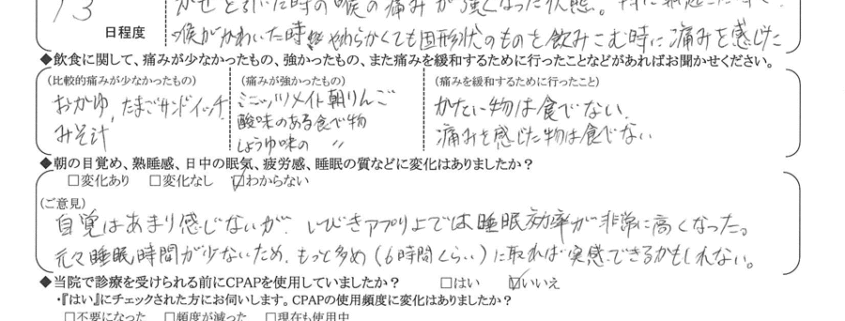 13
日程度
かぜを引いた時の喉の痛みが強くなった状態。特に
喉がかわいた時 やわらかくても固形状のものを飲みこむ時に痛みを感じた
◆飲食に関して、痛みが少なかったもの、強かったもの、また痛みを緩和するために行ったことなどがあればお聞かせください。
(比較的痛みが少なかったもの) (痛みが強かったもの) (痛みを緩和するために行ったこと)
おかゆ、たまごサンドイッチ ミニッツメイド朝りんご かたい物は食べない、
みそ汁 酸味のある食べ物 痛みを感じた物は食べない
しょうゆ味の 〃
◆朝の目覚め、熟睡感、日中の眠気、疲労感、睡眠の質などに変化はありましたか?
□変化あり □変化なし ☑わからない
(ご意見)
自覚はあまり感じないが、いびきアプリ上では睡眠効率が非常に高くなった。
元々睡眠時間が少ないため、もっと多め(6時間くらい)に取れば実感できるかもしれない。
◆当院で診療を受けられる前にCPAPを使用していましたか? □はい ☑いいえ
・『はい』にチェックされた方にお伺いします。CPAPの使用頻度に変化はありましたか?
□不要になった □頻度が減った □現在も使用中